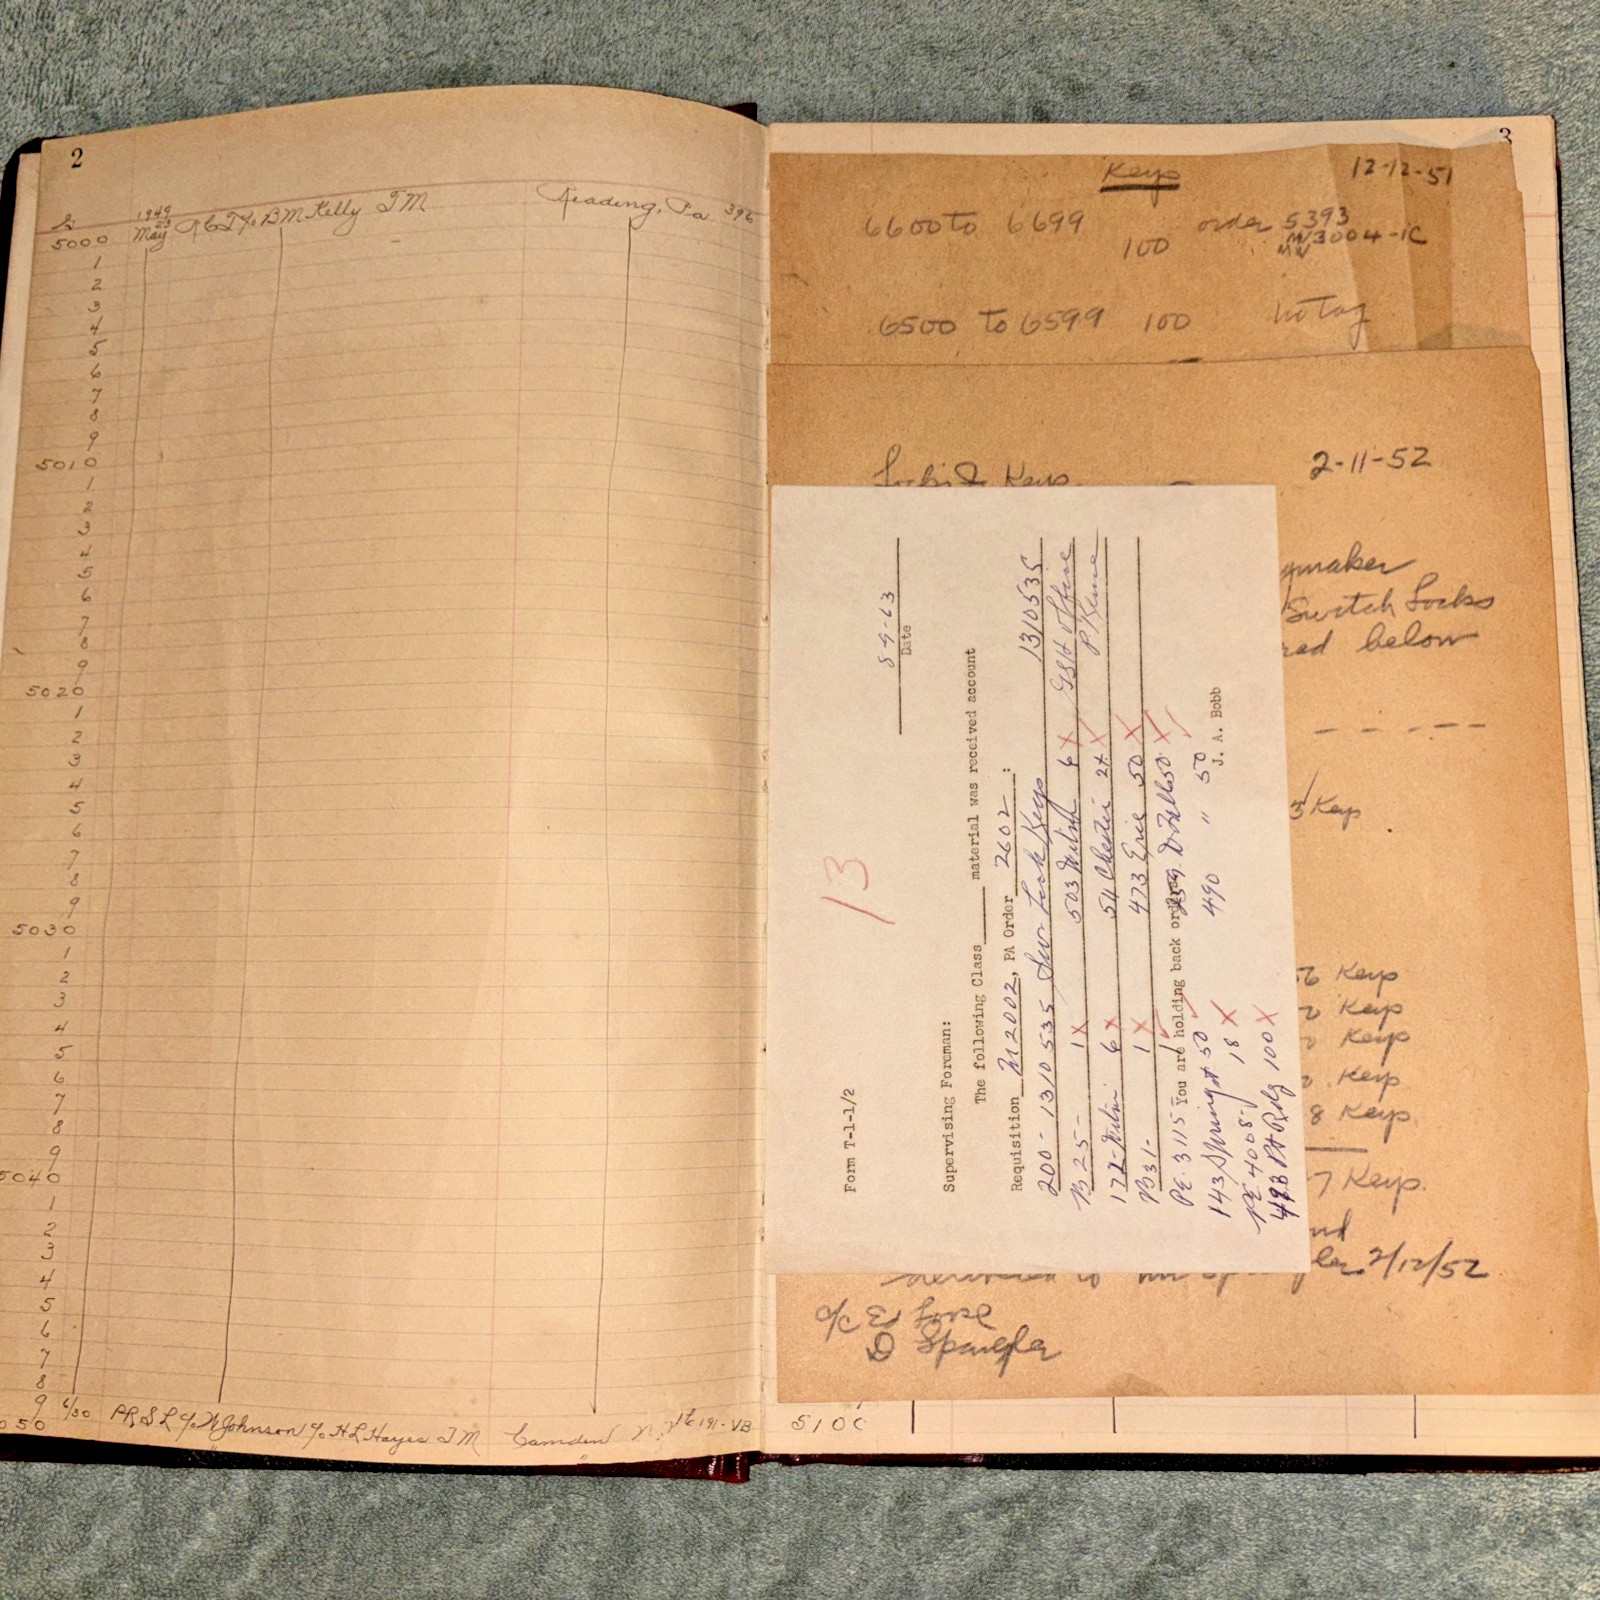 2
1949
May 23
B M Kelly T M Reading, Pa 396
5000
1
2
3
4
5
6
7
8
9
5010
1
2
3
4
5
6
7
8
9
5020
1
2
3
4
5
6
7
8
9
5030
1
2
3
4
5
6
7
8
9
5040
1
2
3
4
5
6
7
8
9
050 6/30 PRSL c/o W Johnson c/o H L Hayes T M Camden N.J. 191-VB
3
Keys 12-12-51
6600 to 6699 100 order 5393
MW3004-1C
MW
6500 to 6599 100 no Tag
Locks & Keys 2-11-52
ymaker
Switch Locks
red below
5 Key
56 Keys
2 Keys
0 Keys
0 Keys
8 Keys.
7 Keys.
nd
ler 2/12/52
D Spangler
5100
Form T-1-1/2
13
8-9-63
Date
Supervising Foreman:
The following Class material was received account
Requisition M2002, PA Order 2602 :
200 - 1310535 Sw Lock Keys 1310535
B 25 - 1 X 503 6 X GSH Office
172 - 6 X 54 Chester 24 X
B31 - 1 X 473 Erie 50 X
PE 3115 - 1 You are holding back order 50 X
143 Springst 50 490 " 50
J. A. Bobb
PE 4008 - 18 X
498 Pt Rdg 100 X